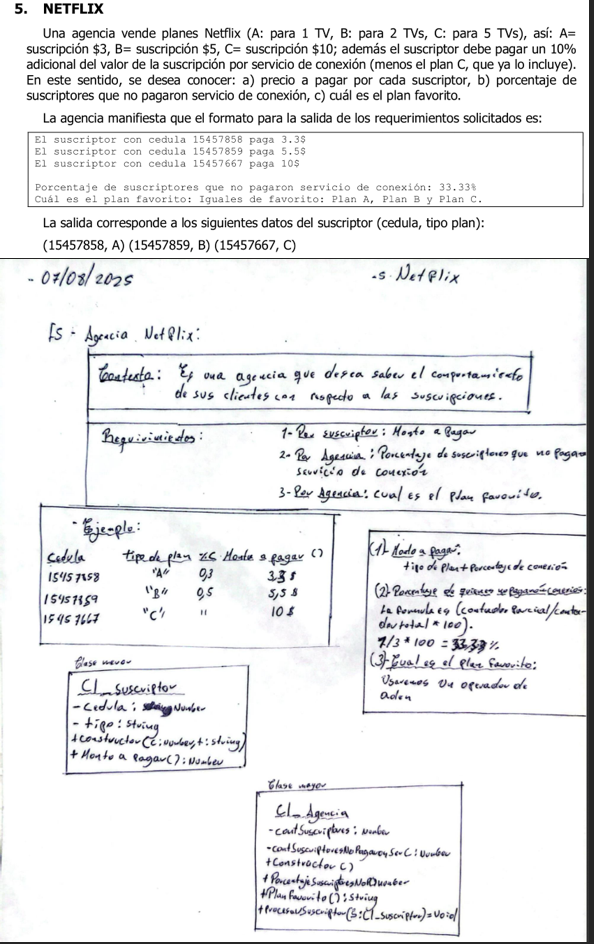 5. NETFLIX
Una agencia vende planes Netflix (A: para 1 TV, B: para 2 TVs, C: para 5 TVs), así: A=
suscripción $3, B= suscripción $5, C= suscripción $10; además el suscriptor debe pagar un 10%
adicional del valor de la suscripción por servicio de conexión (menos el plan C, que ya lo incluye).
En este sentido, se desea conocer: a) precio a pagar por cada suscriptor, b) porcentaje de
suscriptores que no pagaron servicio de conexión, c) cuál es el plan favorito.
La agencia manifiesta que el formato para la salida de los requerimientos solicitados es:
El suscriptor con cedula 15457858 paga 3.3$
El suscriptor con cedula 15457859 paga 5.5$
El suscriptor con cedula 15457667 paga 10$
Porcentaje de suscriptores que no pagaron servicio de conexión: 33.33%
Cuál es el plan favorito: Iguales de favorito: Plan A, Plan B y Plan C.
La salida corresponde a los siguientes datos del suscriptor (cedula, tipo plan):
(15457858, A) (15457859, B) (15457667, C)
- 07/08/2025
-5. Netflix
Agencia Netflix:
Contexto: Es una agencia que desea saber el comportamiento
de sus clientes con respecto a las suscripciones.
Requirimiedos:
1- Por suscriptor: Monto a Pagar
2- Por Agencia: Porcentaje de suscriptores que no Pagaro
servicio de conexión
3- Por Agencia: cual es el Plan favorito.
- Ejemplo:
Cedula tipo de plan Monto a pagar ()
"A" 0,3 3.3 $
"B" 0,5 5,5 $
"C" " 10 $
(1)- Modo a pagar:
tipo de Plan + Porcentaje de conexión
(2)- Porcentaje de
La formula es (contador Parcial/conta-
dor total * 100).
1/3 * 100 = 33,33%
(3)- Cual es el Plan favorito:
Usaremos Un operador de
Clase menor
Cl_Suscriptor
- Cedula: Number
- tipo: String
+ Constructor(c: number, t: string)
+ Monto a Pagar(): Number
Clase mayor
Cl_Agencia
- contSuscriptores: Number
- contSuscriptoresNoPagaronSerC: Number
+ Constructor ()
+ PlanFavorito(): String
+ ProcesarSuscriptor(S: Cl_Suscriptor) = Void